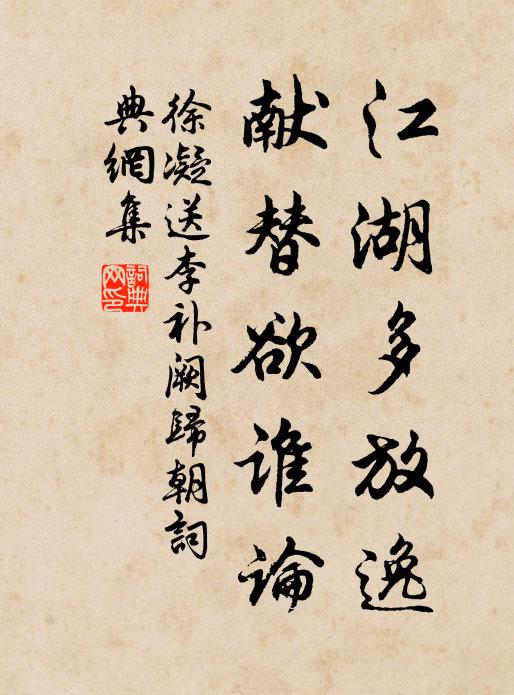 江湖多放逸
献替欲谁論
徐凝送李补阙歸朝詞
典網集
詞典網印